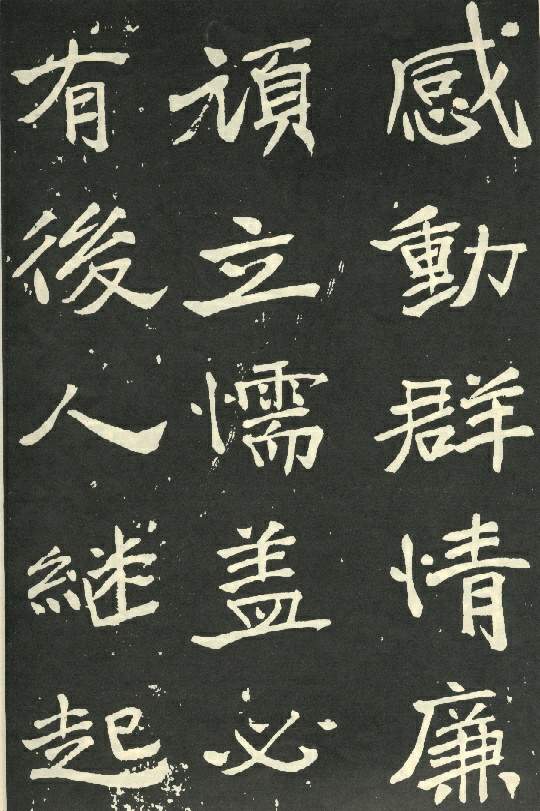 感動群情廉
頑立懦盖必
有後人継起